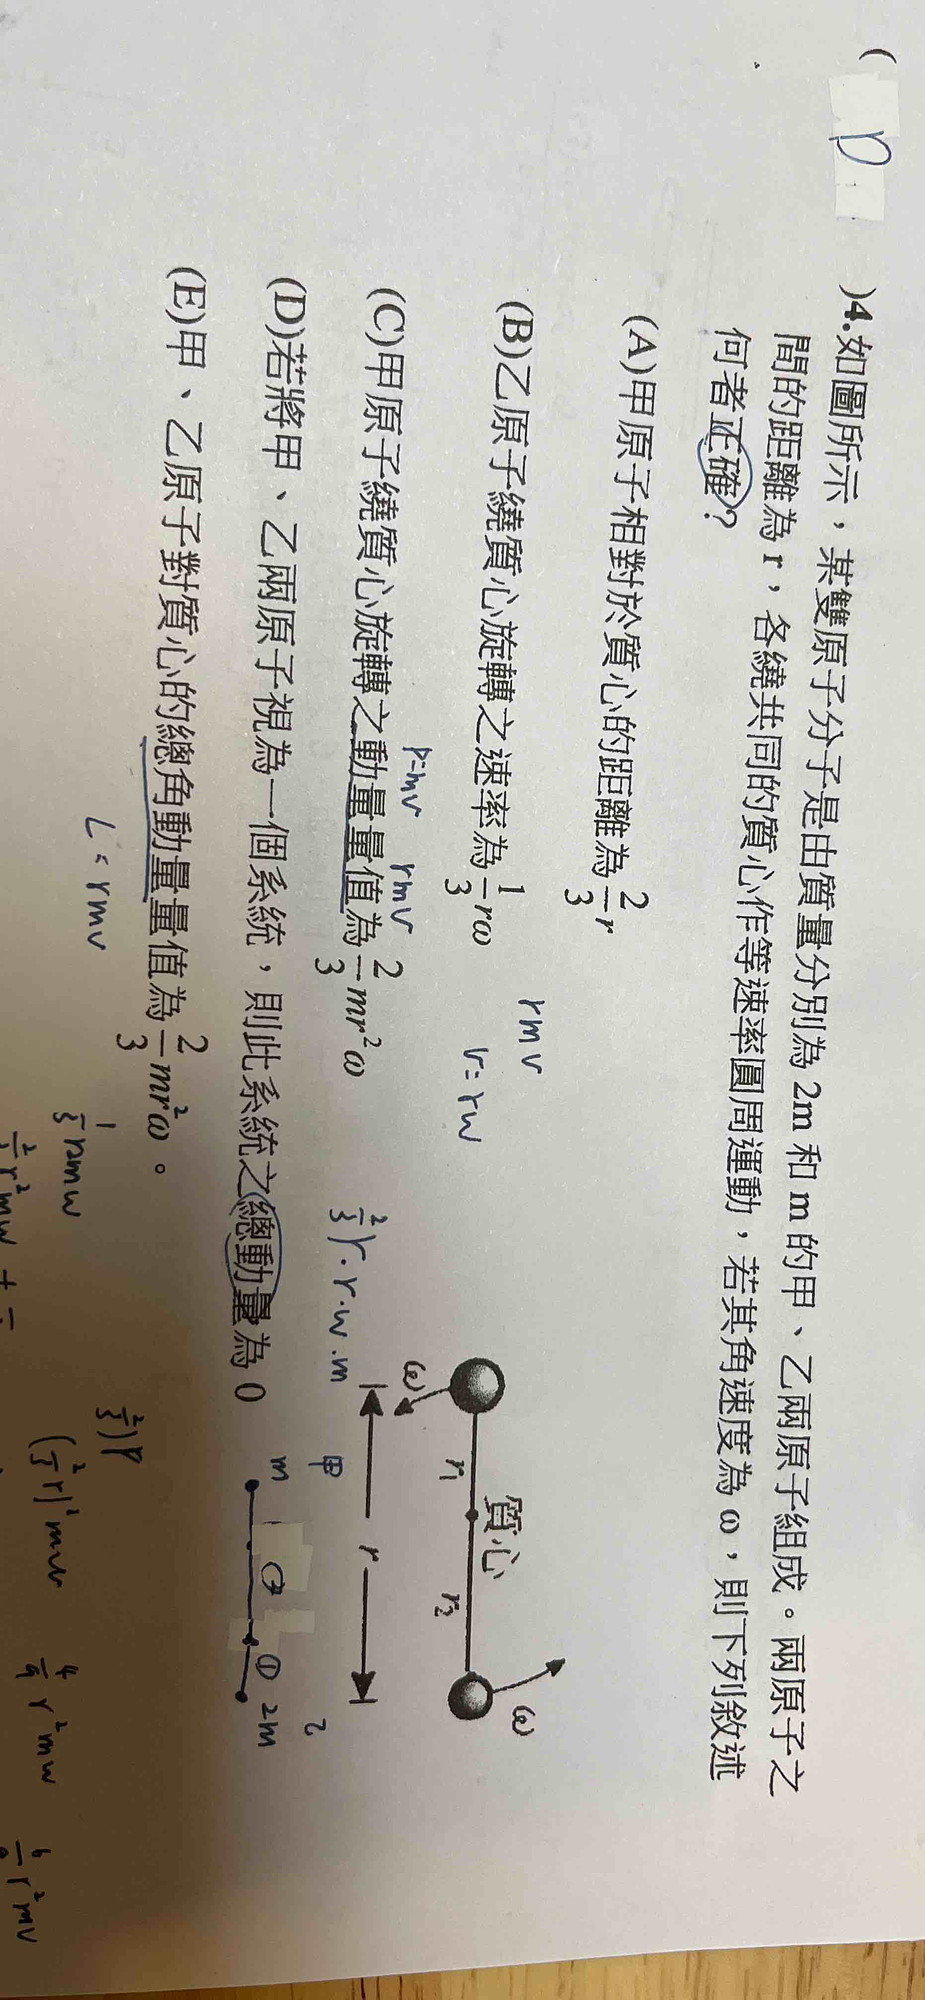 ( D )4.如圖所示，某雙原子分子是由質量分別為 2m 和 m 的甲、乙兩原子組成。兩原子之
間的距離為 r，各繞共同的質心作等速率圓周運動，若其角速度為 ω，則下列敘述
何者正確?
(A)甲原子相對於質心的距離為 2/3 r
(B)乙原子繞質心旋轉之速率為 1/3 rω
(C)甲原子繞質心旋轉之動量量值為 2/3 mr²ω
(D)若將甲、乙兩原子視為一個系統，則此系統之總動量為 0
(E)甲、乙原子對質心的總角動量量值為 2/3 mr²ω。
rmv
v=rw
P=mv rmv
2/3 r·r·w·m
L=rmv
質心
r₁ r₂
ω
ω
r
甲
m ② ① 2m
2
1/3 r2mw
(2/3 r)²mv
4/9 r²mw